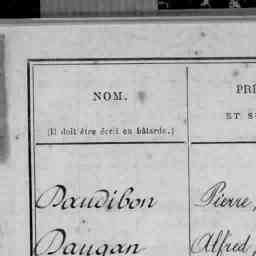 NOM.
PRÉ
(Il doit être écrit en bâtarde.)
ET S
Daudibon Pierre,
Daugan Alfred,